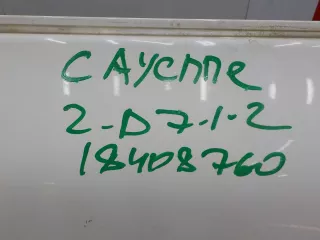 CAYENNE
2-D7-1-2
18408760